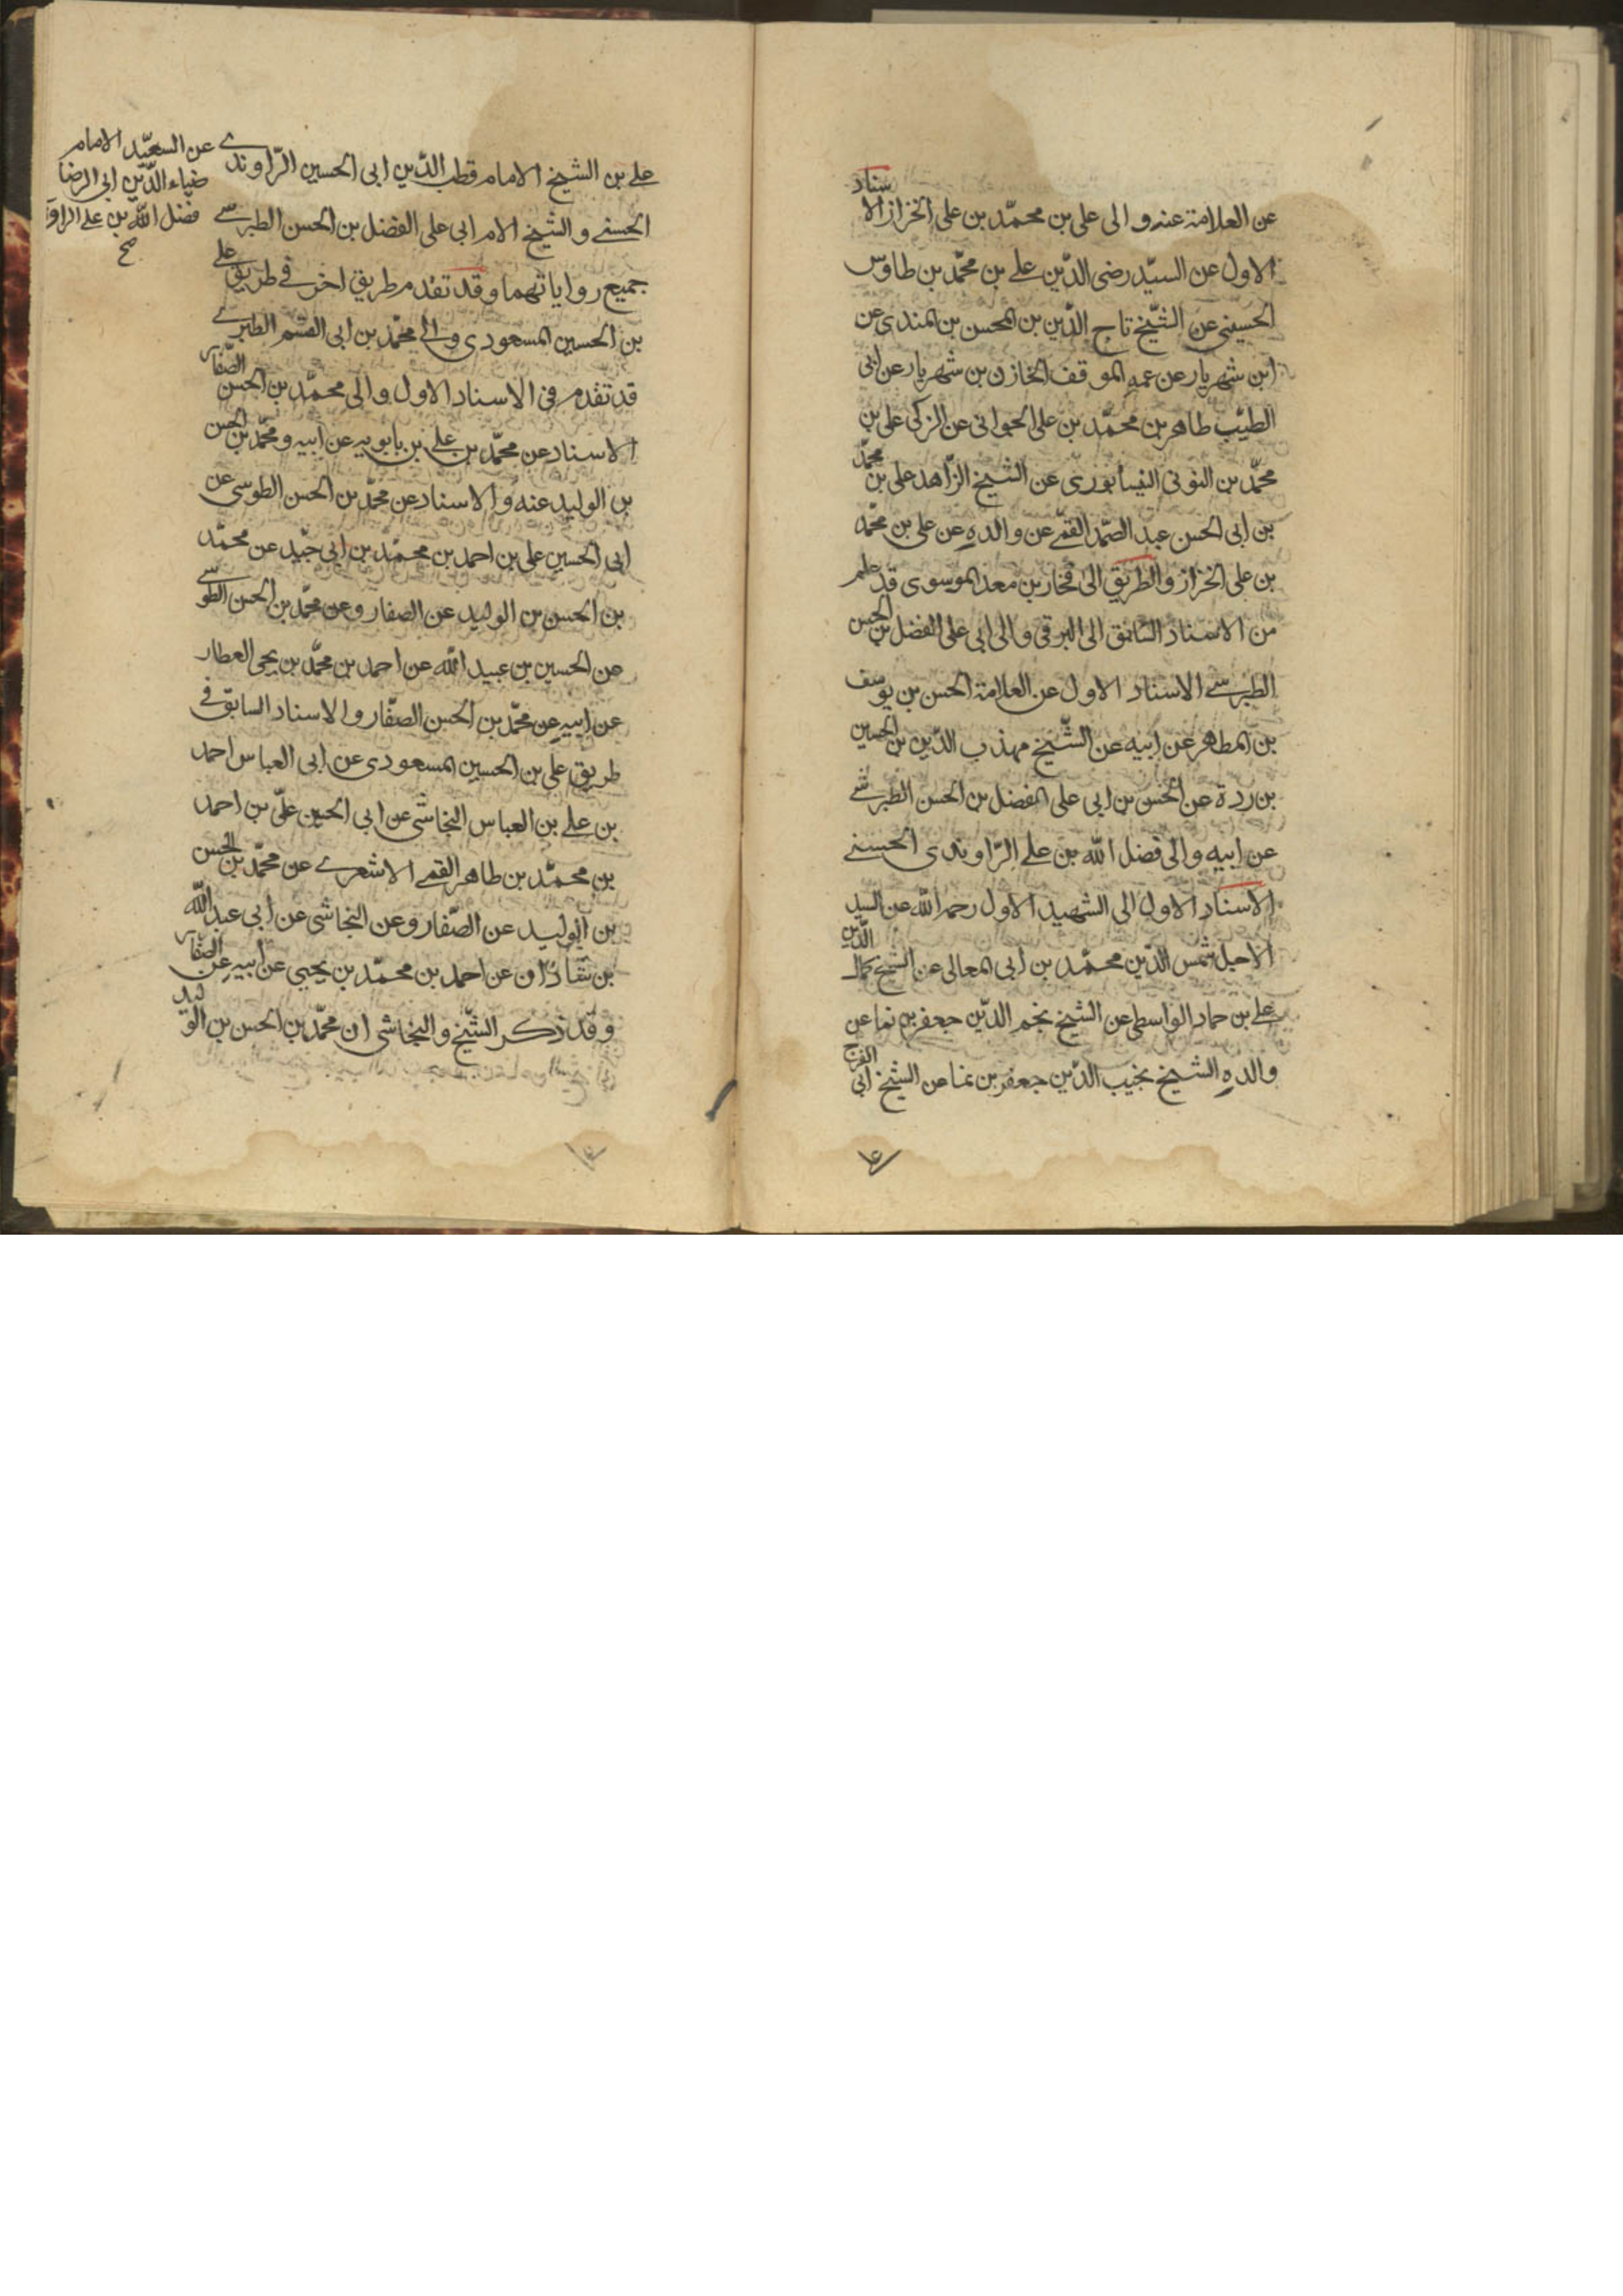 عن العلامة عنه و الى على بن محمّد بن على الخزاز الاسناد
الاول عن السيّد رضى الدّين على بن محمّد بن طاوس
الحسينى عن الشّيخ تاج الدّين بن المحسن بن عن
ابن شهريار عن عمه الموقف الخازن بن شهريار عن ابى
الطيّب طاهر بن محمّد بن على عن الزكى على بن
محمّد بن النيسابورى عن الشيخ الزّاهد على بن محمّد
بن ابى الحسن عبد الصّمد القمّى عن والده عن على بن محمّد
بن على الخزاز والطريق الى فخار بن معد الموسوى قد علم
من الاسناد السّابق الى البرقى والى ابى على الفضل بن الحسن
الطبرسى الاسناد الاول عن العلامة الحسن بن يوسف
بن المطهر عن ابيه عن الشّيخ مهذب الدّين بن الحسين
بن ردة عن الحسن بن ابى على الفضل بن الحسن الطبرسى
عن ابيه والى فضل الله بن على الرّاوندى الحسنى
الاسناد الاول الى الشهيد الاول رحمه الله عن السيد
الاجل شمس الدّين محمّد بن ابى المعالى عن الشيخ كمال الدّين
على بن حماد الواسطى عن الشيخ نجم الدّين جعفر بن نما عن
والده الشيخ نجيب الدّين جعفر بن نما عن الشيخ ابى الفرج
على بن الشيخ الامام قطب الدّين ابى الحسين الرّاوندى
عن السعيد الامام
ضياء الدّين ابى الرضا
فضل الله بن على
صح
الحسنى و الشيخ ابى على الفضل بن الحسن الطبرسى
جميع رواياتهما وقد تقدم طريق اخر فى طريق على
بن الحسين المسعودى والى محمّد بن ابى القسم الطبرى
قد تقدم فى الاسناد الاول والى محمّد بن الحسن الصّفار
الاسناد عن محمّد بن على بن بابويه عن ابيه و محمّد بن الحسن
بن الوليد عنه و الاسناد عن محمّد بن الحسن الطوسى عن
ابى الحسين على بن احمد بن محمّد بن ابى جيد عن محمّد
بن الحسن بن الوليد عن الصفار وعن محمّد بن الحسن الطوسى
عن الحسين بن عبيد الله عن احمد بن محمّد بن يحى العطار
عن ابيه عن محمّد بن الحسن الصفّار والاسناد السابق فى
طريق على بن الحسين المسعودى عن ابى العباس احمد
بن على بن العباس النجاشى عن ابى الحسين علىّ بن احمد
بن محمّد بن طاهر القمى الاشعرى عن محمّد بن الحسن
بن الوليد عن الصّفار وعن النجاشى عن ابى عبد الله
بن شاذان عن احمد بن محمّد بن يحيى عن ابيه عن الصفار
وقد ذكر الشّيخ والنجاشى ان محمّد بن الحسن بن الوليد